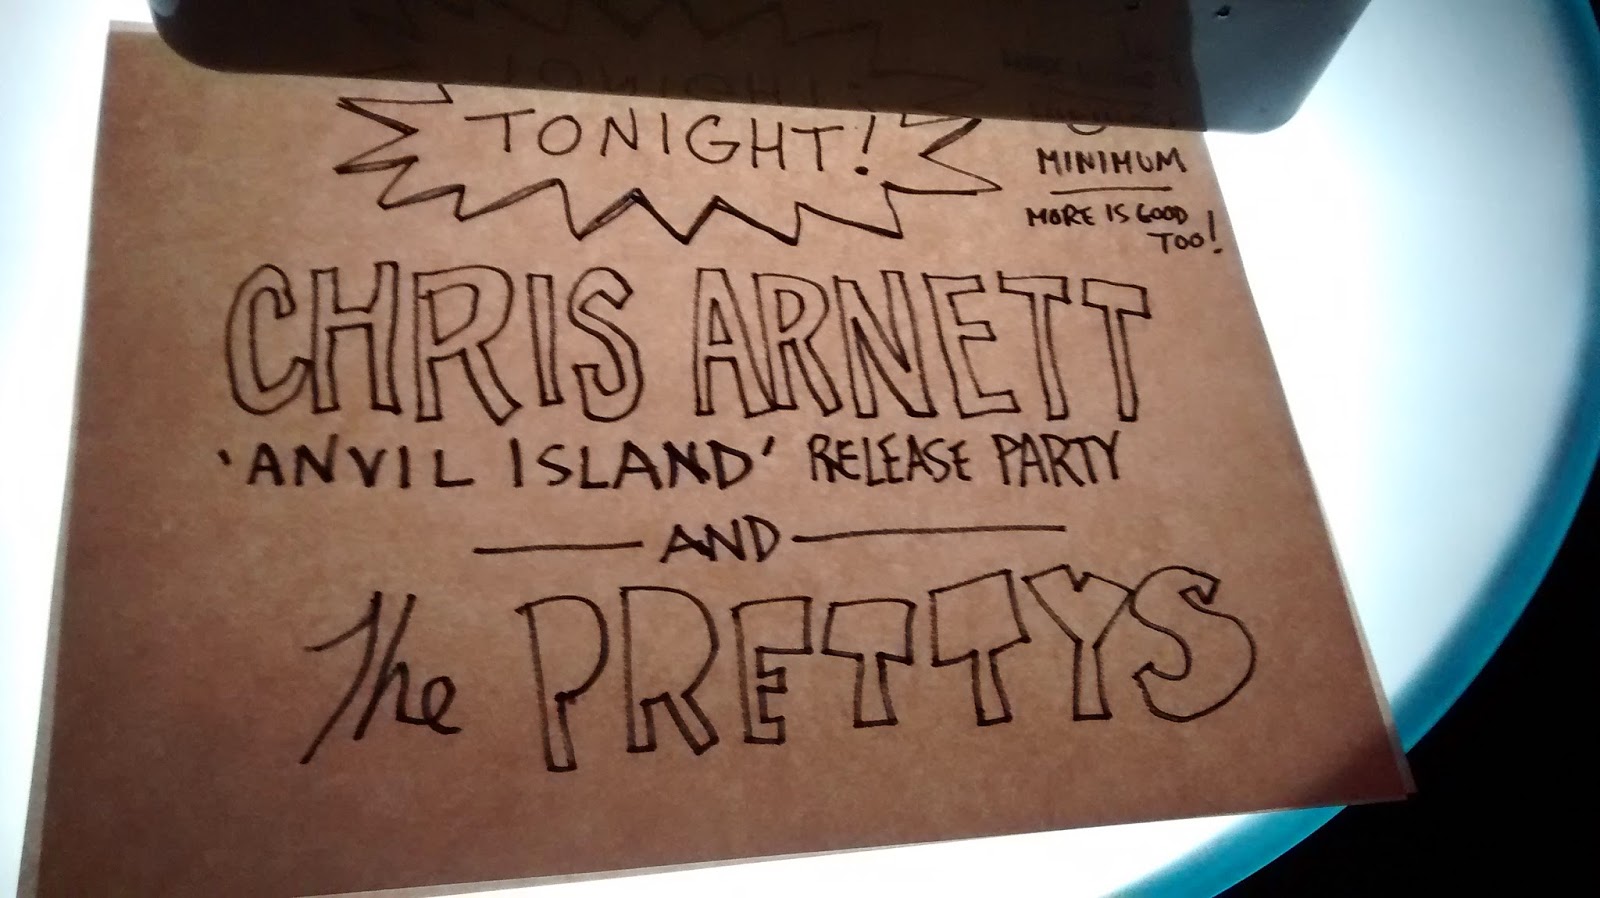 TONIGHT!
MINIMUM
MORE IS GOOD
TOO!
CHRIS ARNETT
'ANVIL ISLAND' RELEASE PARTY
AND
The PRETTYS